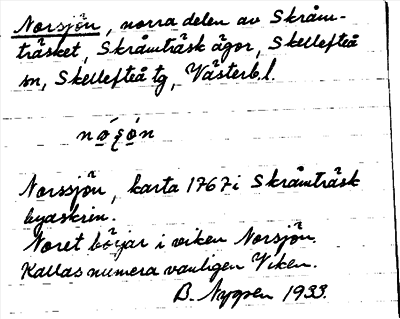 Norsjön, norra delen av Skråm-
träsket, Skråmträsk ägor, Skellefteå
sn, Skellefteå tg, Västerb.l.
Norssjön, karta 1767 i Skråmträsk
byaskrin.
Noret börjar i viken Norsjön.
Kallas numera vanligen Viken.
B. 1933.